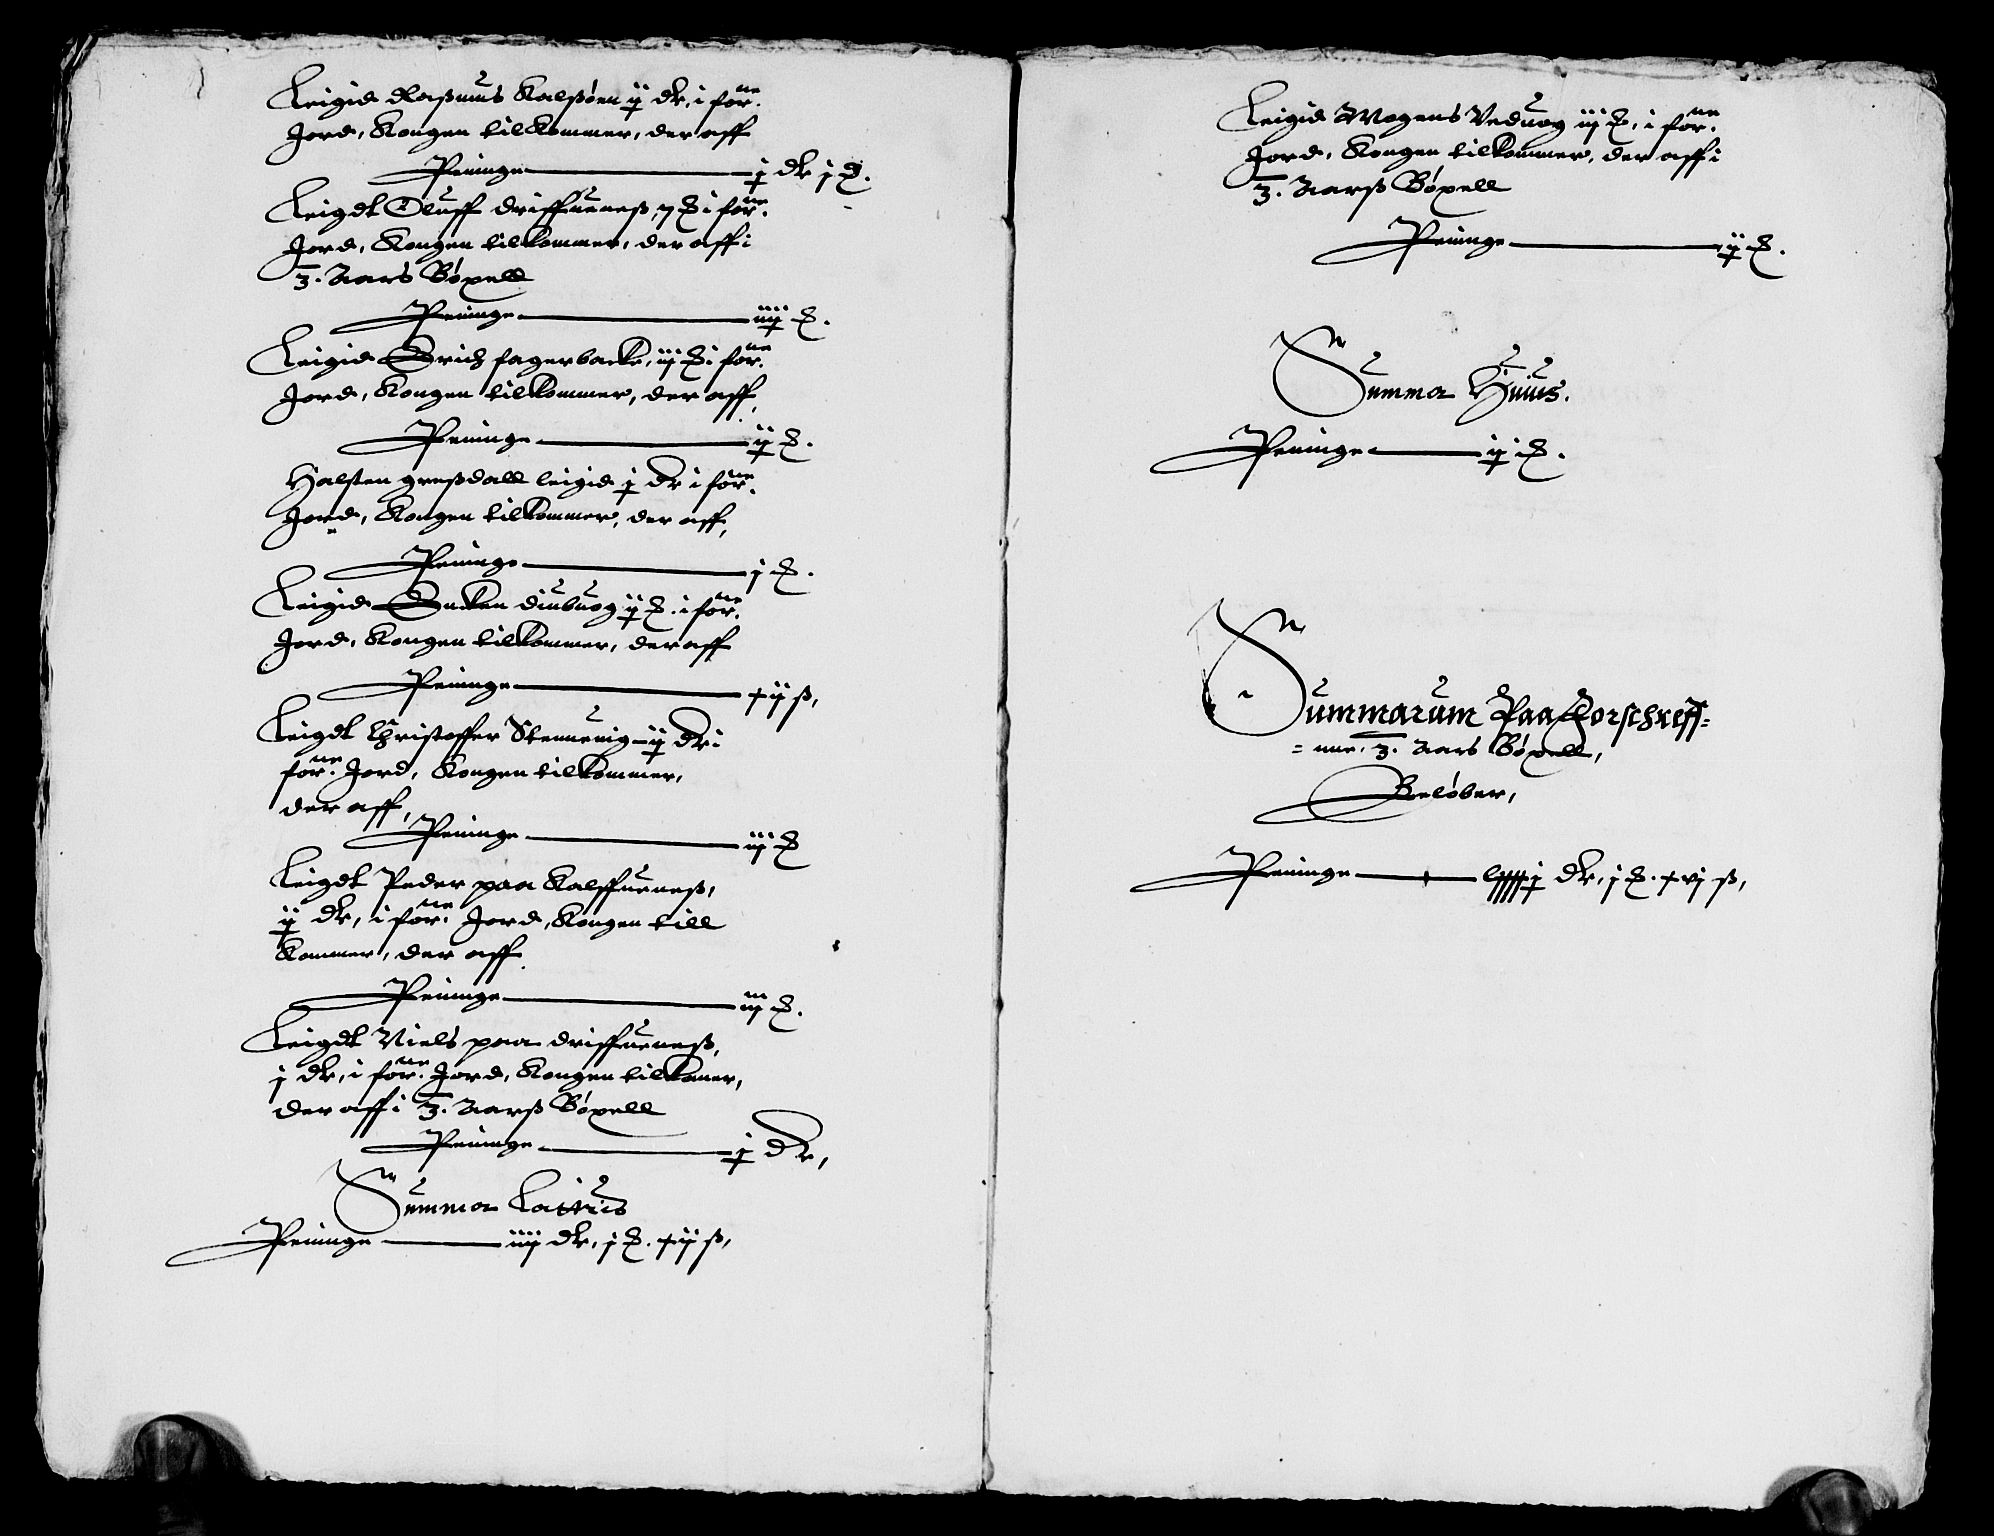 Leigid Rasmus Kalsøen ij dr, i for:ne
Jord, Kongen tilkommer, der aff
Peninge j dr j
Leigdt Oluff driffueness, i for:ne
Jord, Kongen tilkommer, der aff i
3. Aars Bøxell
Peninge iiij
Leigid Erich fagerbacke, iij i for:ne
Jord, Kongen tilkommer, der aff,
Peninge ij
Halsten leigid j dr i for:ne
Jord, Kongen tilkommer, der aff,
Peninge j
Leigid ij i for:ne
Jord, Kongen tilkommer, der aff
Peninge xij ß,
Leigdt Christoffer ij dr i
for:ne Jord, Kongen tilkommer,
der aff,
Peninge iij
Leigdt Peder paa Kalffueness,
ij dr, i for:ne Jord, Kongen till
kommer, der aff
Peninge iij
Leigdt Niels paa driffueness,
j dr, i for:ne Jord, Kongen tilkomer,
der aff i 3. Aarss Bøxell
Peninge j dr,
Summa Lateris
Peninge iiij dr, j xij ß,
Leigid Mogens iij, i for:ne
Jord, Kongen tilkommer, der aff i
3. Aarss Bøxell
Peninge ij
Summa Huius.
Peninge ij
Summarum Paa Forschreff=
=nne, 3. Aars Bøxell,
Beløber,
Peninge dr, j xvj ß,